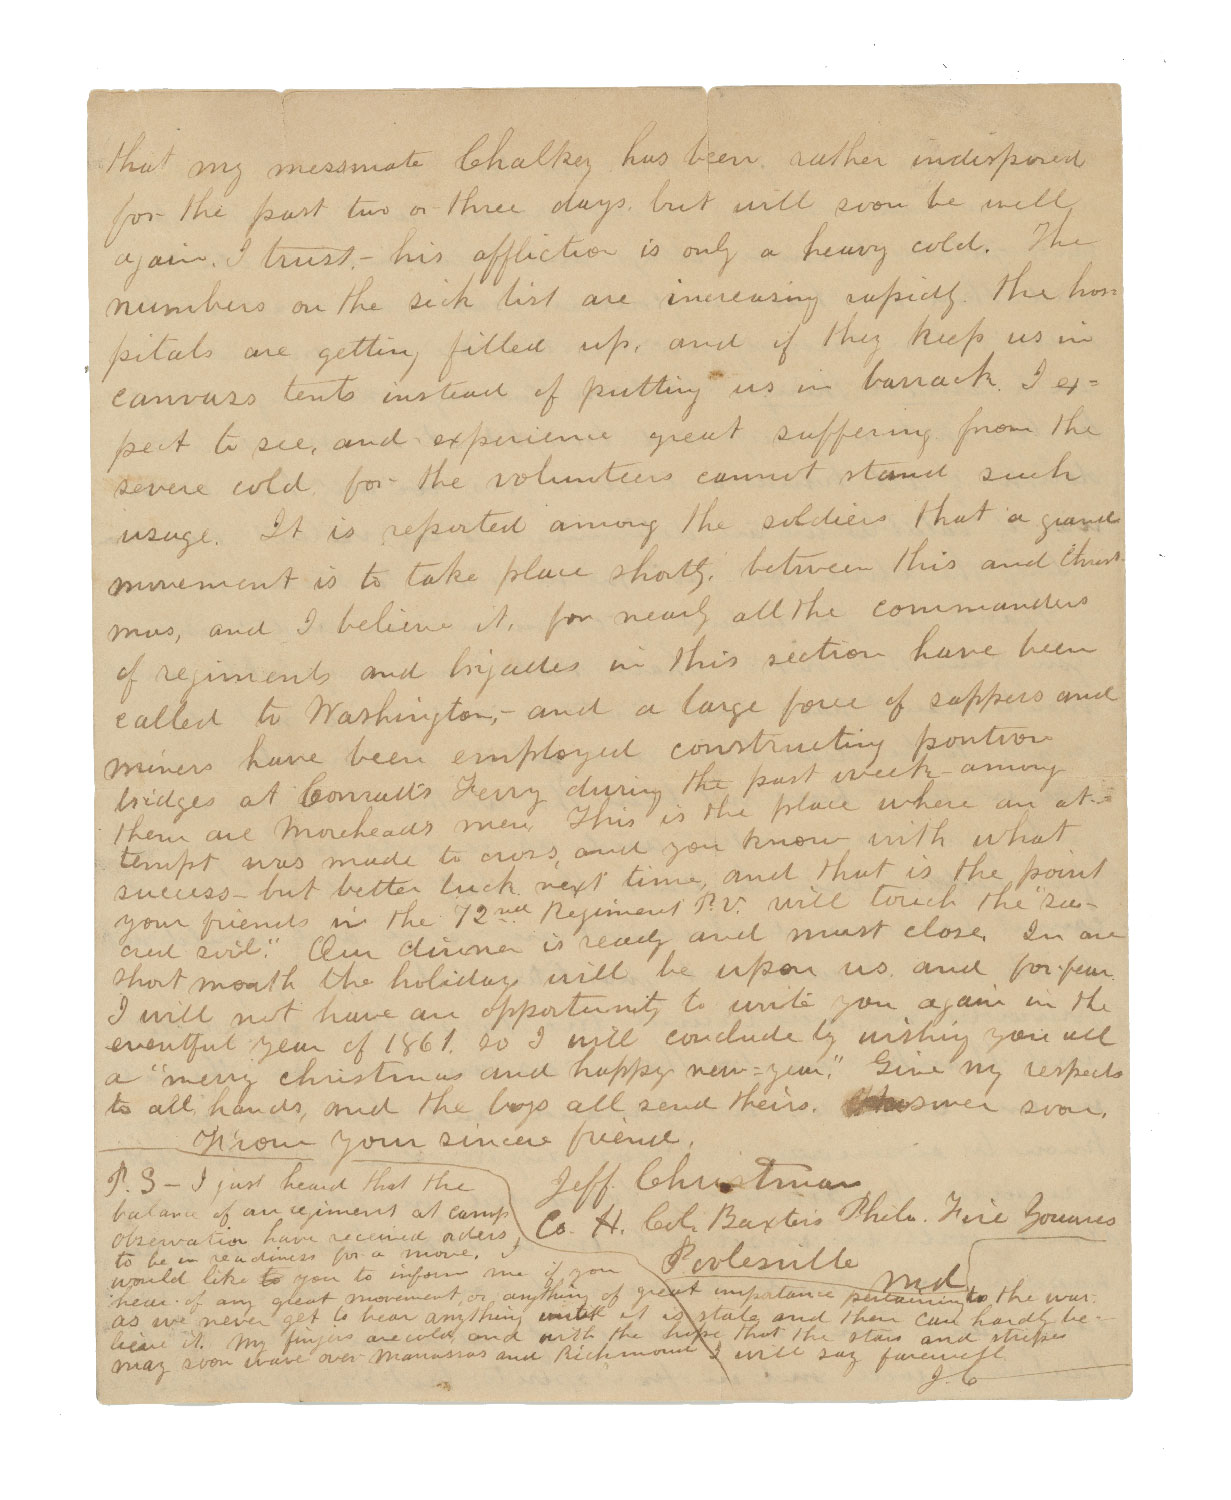 that my messmate Chalkey has been rather indisposed
for the past two or three days. but will soon be well
again. I trust.- his affliction is only a heavy cold. The
numbers on the sick list are increasing rapidly. the hos=
pitals are getting filled up, and if they keep us in
canvass tents instead of putting us in barrack. I ex=
pect to see, and experience great suffering from the
severe cold for the volunteers cannot stand such
usage. It is reported among the soldiers that a grand
movement is to take place shortly. between this and Christ-
mas, and I believe it. for nearly all the commanders
of regiments and brigades in this section have been
called to Washington,- and a large force of sappers and
miners have been employed constructing pontoon
bridges at Conrad's Ferry during the past week - among
them are Moreheads men. This is the place where an at-
tempt was made to cross, and you know with what
success - but better luck next time, and that is the point
your friends in the 72nd Regiment P.V. will touch the "sa-
cred soil." Our dinner is ready and must close. In one
short month the holidays will be upon us. and for fear
I will not have an opportunity to write you again in the
eventful year of 1861. so I will conclude by wishing you all
a "merry christmas and happy new=year." Give my respects
to all hands, and the boys all send theirs. Answer soon.
From your sincere friend.
Jeff. Christman
Co. H. Col. Baxter's Phila. Fire Zouaves
Poolesville
Md
P.S - I just heard that the
balance of our regiment at camp
observation have received orders
to be in readiness for a move. I
would like to you to inform me if you
hear of any great movement, or anything of great importance pertaining to the war.
as we never get to hear anything until it is stale and then can hardly be-
lieve it. My fingers are cold, and with the hope that the stars and stripes
may soon wave over Manassas and Richmond I will say farewell
J. C